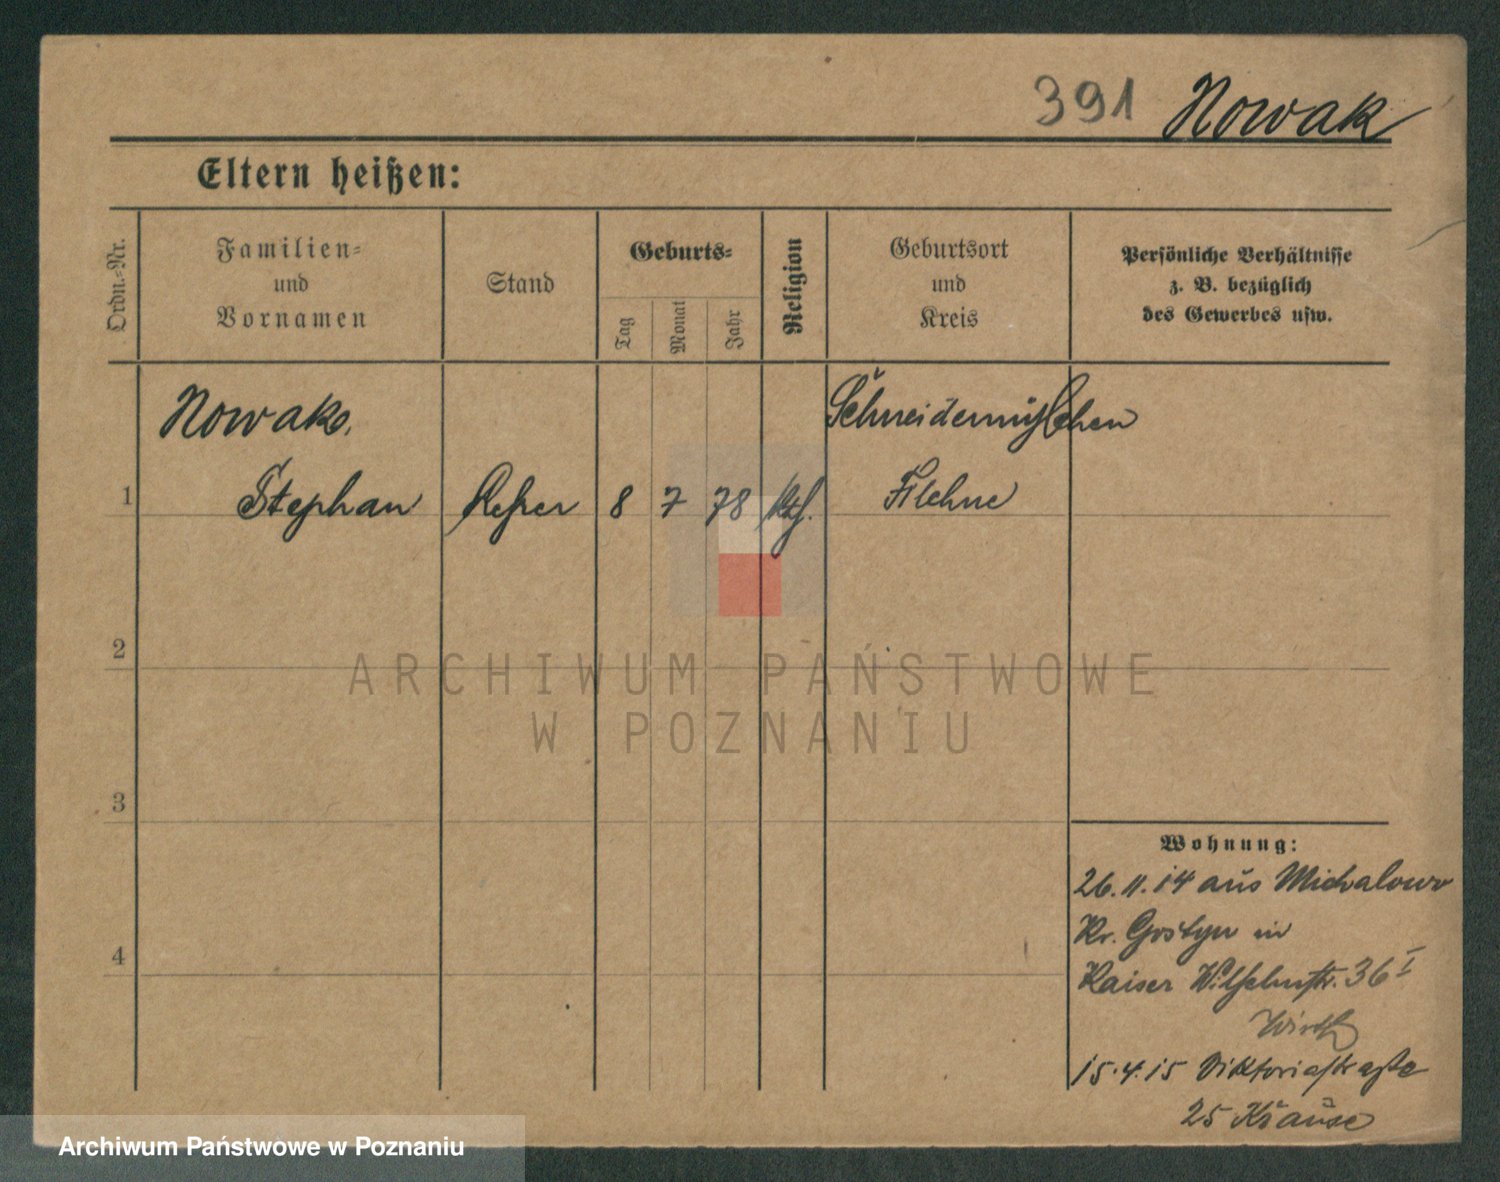 391 Nowak
Eltern heißen:
Ordn.-Nr.
Familien-
und
Vornamen
Stand
Geburts-
Tag
Monat
Jahr
Religion
Geburtsort
und
Kreis
Persönliche Verhältnisse
z. B. bezüglich
des Gewerbes usw.
Nowak,
Schneidemühlchen
1 Stephan 8 7 78 kth. Filehne
2
3
4
ARCHIWUM PAŃSTWOWE
W POZNANIU
Wohnung:
26.11.14 aus Michalowo
Kr. Gostyn in
Kaiser Wilhelmstr. 36 I
Wirth
15.4.15 Viktoriastraße
25 Krause
Archiwum Państwowe w Poznaniu